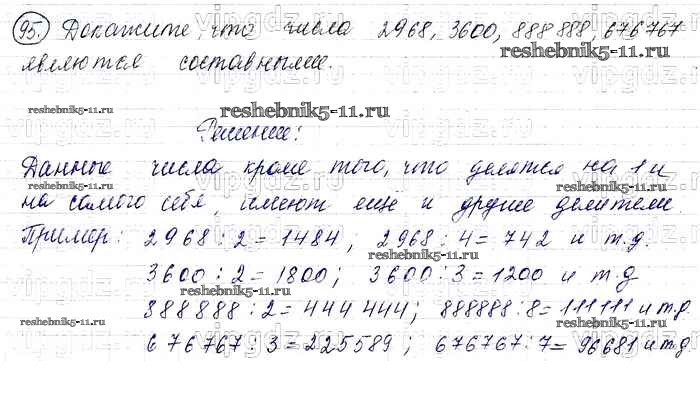 95. Докажите, что числа 2968, 3600, 888 888, 676767
являются составными.
reshebnik5-11.ru
reshebnik5-11.ru
reshebnik5-11.ru
Решение:
Данные числа кроме того, что делятся на 1 и
на самого себя, имеют ещё и другие делители.
reshebnik5-11.ru
Пример: 2968 : 2 = 1484; 2968 : 4 = 742 и т.д.
3600 : 2 = 1800; 3600 : 3 = 1200 и т.д
reshebnik5-11.ru
388888 : 2 = 444 444; 888888 : 8 = 111111 и т.д.
reshebnik5-11.ru
reshebnik5-11.ru
676767 : 3 = 225589; 676767 : 7 = 96681 и т.д
vipgdz.ru